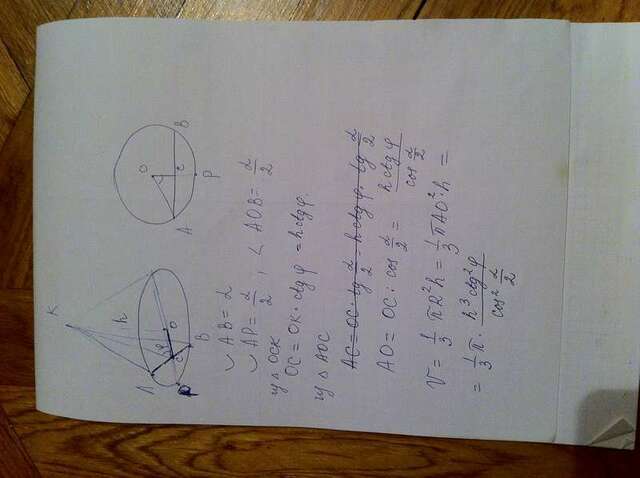 K
h
φ
A
C
O
B
P
O
C
A
B
P
◡ AB = α
◡ AP = α/2 , ∠ AOB = α/2
из △ OCK
OC = OK · ctg φ = h ctg φ.
из △ AOC
AC = OC · tg α/2 = h ctg φ · tg α/2
AO = OC : cos α/2 = h ctg φ / cos α/2
V = 1/3 πR²h = 1/3 πAO²·h =
= 1/3 π · h³ctg²φ / cos² α/2